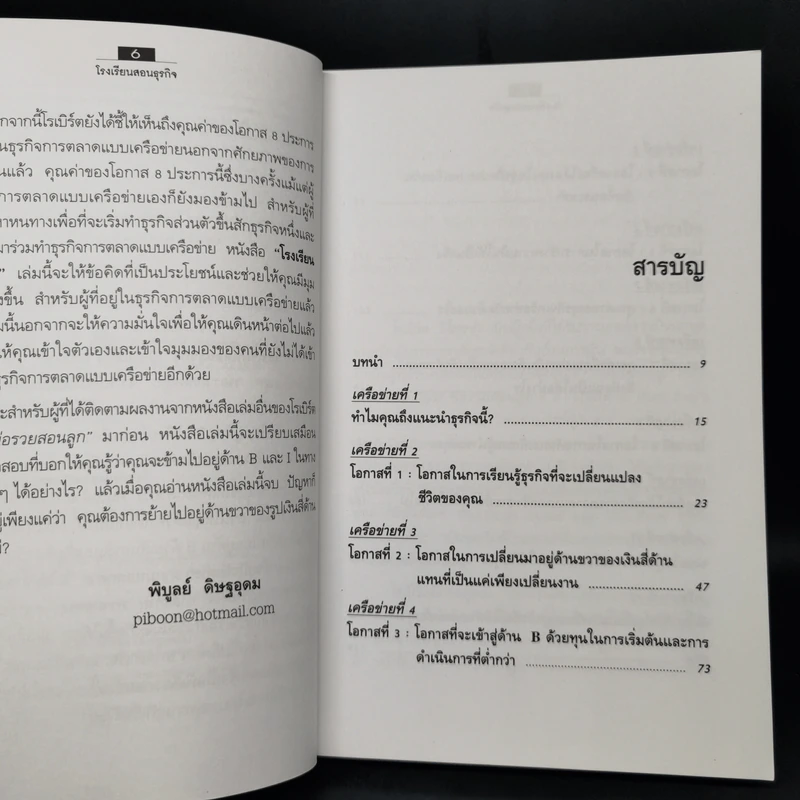 6
โรงเรียนสอนธุรกิจ
กจากนี้โรเบิร์ตยังได้ชี้ให้เห็นถึงคุณค่าของโอกาส 8 ประการ
นธุรกิจการตลาดแบบเครือข่ายนอกจากศักยภาพของการ
นแล้ว คุณค่าของโอกาส 8 ประการนี้ซึ่งบางครั้งแม้แต่ผู้
การตลาดแบบเครือข่ายเองก็ยังมองข้ามไป สำหรับผู้ที่
าหนทางเพื่อที่จะเริ่มทำธุรกิจส่วนตัวขึ้นสักธุรกิจหนึ่งและ
มาร่วมทำธุรกิจการตลาดแบบเครือข่าย หนังสือ "โรงเรียน
" เล่มนี้จะให้ข้อคิดที่เป็นประโยชน์และช่วยให้คุณมีมุม
งขึ้น สำหรับผู้ที่อยู่ในธุรกิจการตลาดแบบเครือข่ายแล้ว
มนี้นอกจากจะให้ความมั่นใจเพื่อให้คุณเดินหน้าต่อไปแล้ว
ให้คุณเข้าใจตัวเองและเข้าใจมุมมองของคนที่ยังไม่ได้เข้า
ธุรกิจการตลาดแบบเครือข่ายอีกด้วย
ะสำหรับผู้ที่ได้ติดตามผลงานจากหนังสือเล่มอื่นของโรเบิร์ต
่อรวยสอนลูก" มาก่อน หนังสือเล่มนี้จะเปรียบเสมือน
อสอบที่บอกให้คุณรู้ว่าคุณจะข้ามไปอยู่ด้าน B และ I ในทาง
ๆ ได้อย่างไร? แล้วเมื่อคุณอ่านหนังสือเล่มนี้จบ ปัญหาก็
ยู่เพียงแค่ว่า คุณต้องการย้ายไปอยู่ด้านขวาของรูปเงินสี่ด้าน
?
พิบูลย์ ดิษฐอุดม
piboon@hotmail.com
สารบัญ
บทนำ 9
เครือข่ายที่ 1
ทำไมคุณถึงแนะนำธุรกิจนี้? 15
เครือข่ายที่ 2
โอกาสที่ 1 : โอกาสในการเรียนรู้ธุรกิจที่จะเปลี่ยนแปลง
ชีวิตของคุณ 23
เครือข่ายที่ 3
โอกาสที่ 2 : โอกาสในการเปลี่ยนมาอยู่ด้านขวาของเงินสี่ด้าน
แทนที่เป็นแค่เพียงเปลี่ยนงาน 47
เครือข่ายที่ 4
โอกาสที่ 3 : โอกาสที่จะเข้าสู่ด้าน B ด้วยทุนในการเริ่มต้นและการ
ดำเนินการที่ต่ำกว่า 73